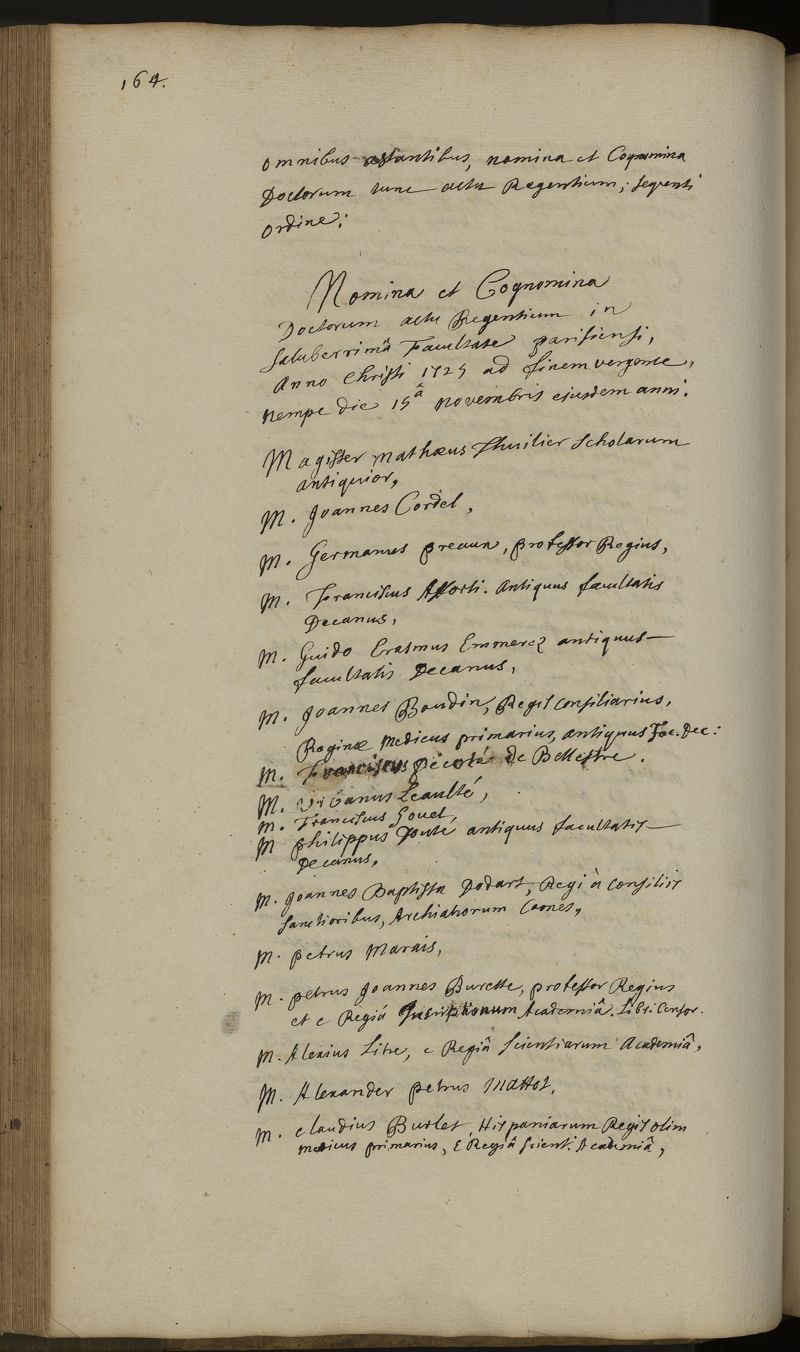 164.
omnibus astantibus, nomina et Cognomina
Doctorum tunc actu Regentium, sequenti
ordine:
Nomina et Cognomina
Doctorum actu Regentium in
saluberrimâ Facultate parisiensi,
Anno Christi 1725 ad finem vergente,
nempe die 15â novembris ejusdem anni.
Magister Mathæus Thuilier scholarum
antiquior,
M. Joannes Cordel,
M. Germanus preaux, professor Regius,
M. Franciscus Afforti. Antiquus facultatis
Decanus,
M. Guido Erasmus Emmerez antiquus
facultatis Decanus,
M. Joannes Boudin, Regis Consiliarius,
Reginæ Medicus primarius, antiquus Fac. Dec:
M. Franciscus picoté De Bellestre.
M. Urbanus Leaulté,
M. Franciscus Gouel,
M philippus Douté antiquus facultatis
Decanus,
M. Joannes Baptista Dodart, Regi à Consiliis
sanctioribus, Archiatrorum Comes,
M. petrus Marais,
M. petrus Joannes Burette, professor Regius
et e Regiâ Inscriptionum Academiâ. Libri Censor.
M. Alexius Litre, e Regiâ scientiarum Academiâ,
M. Alexander petrus Mattot,
M. claudius Burlet, Hispaniarum Regis olim
medicus primarius, E Regiâ scient. Academiâ,